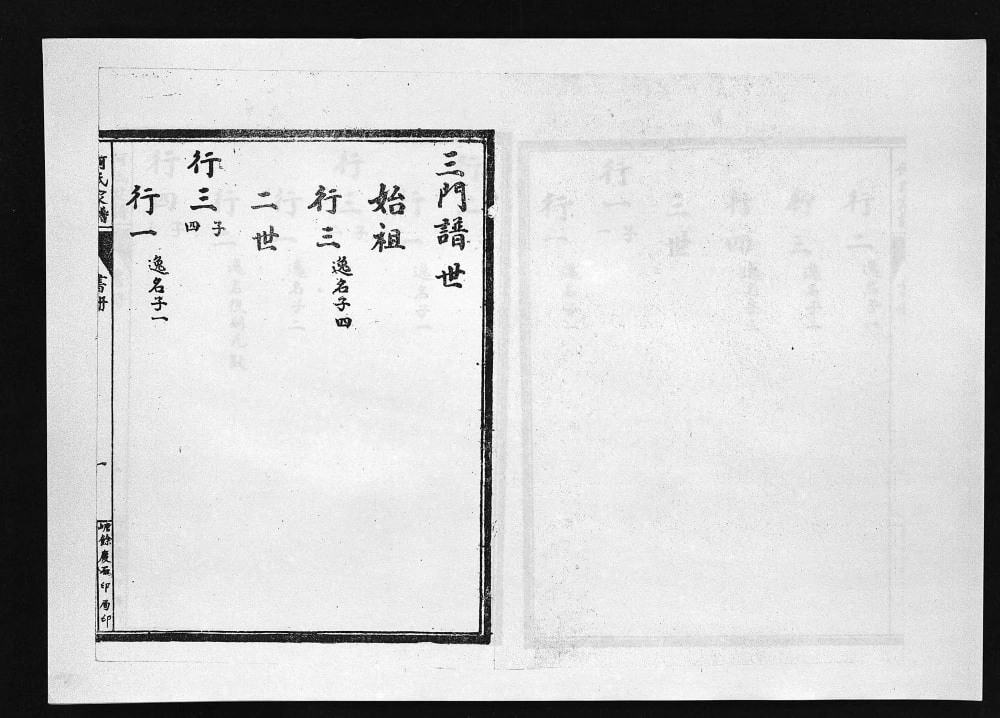 三門譜世
始祖
行三 逸名子四
二世
行三 子四
行一 逸名子一
何氏家譜 書册 一 餘慶石印局印